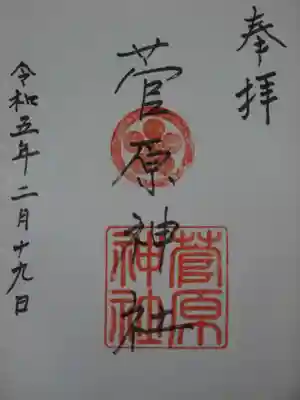 奉拝
菅原神社
菅原
神社
令和五年二月十九日